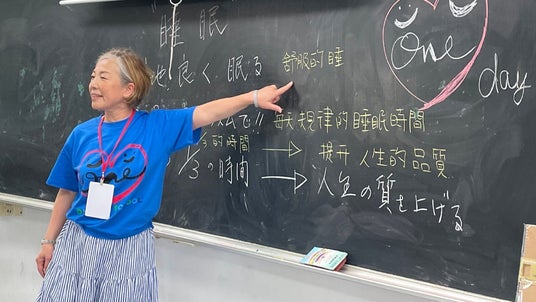 "睡眠"
心地良く眠る 舒服的睡
One day
!! 每天規律的睡眠時間
1/3的時間 → 提升人生的品質
1/3の時間 → 人生の質を上げる
One